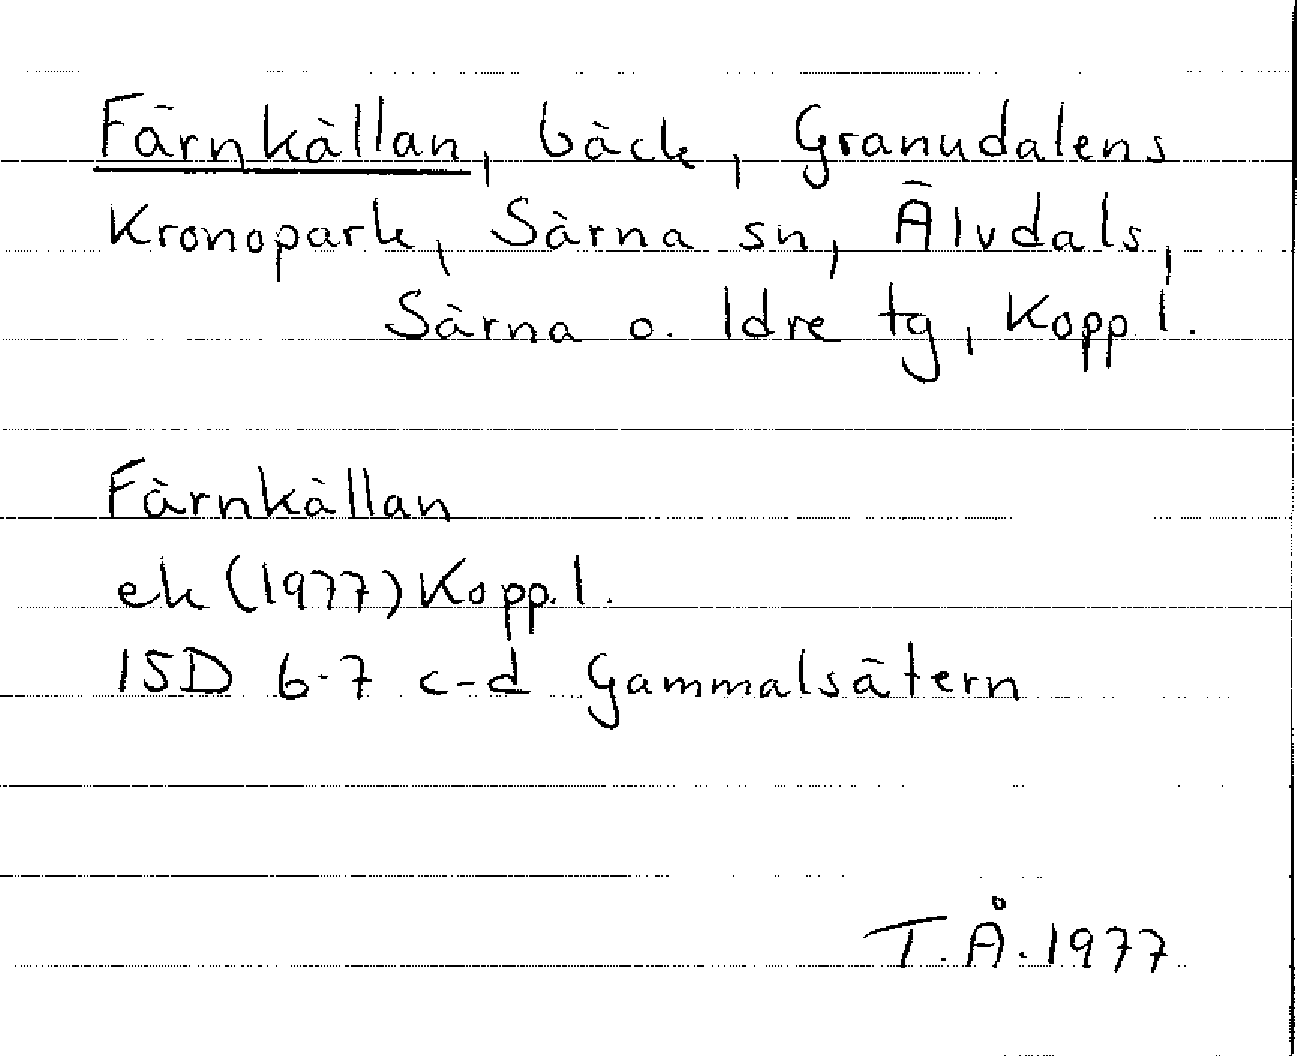 Färnkällan, bäck, Granudalens
Kronopark, Särna sn, Älvdals,
Särna o. Idre tg, Kopp. l.
Färnkällan
ek (1977) Kopp. l.
15D 6-7 c-d Gammalsätern
T.Å. 1977